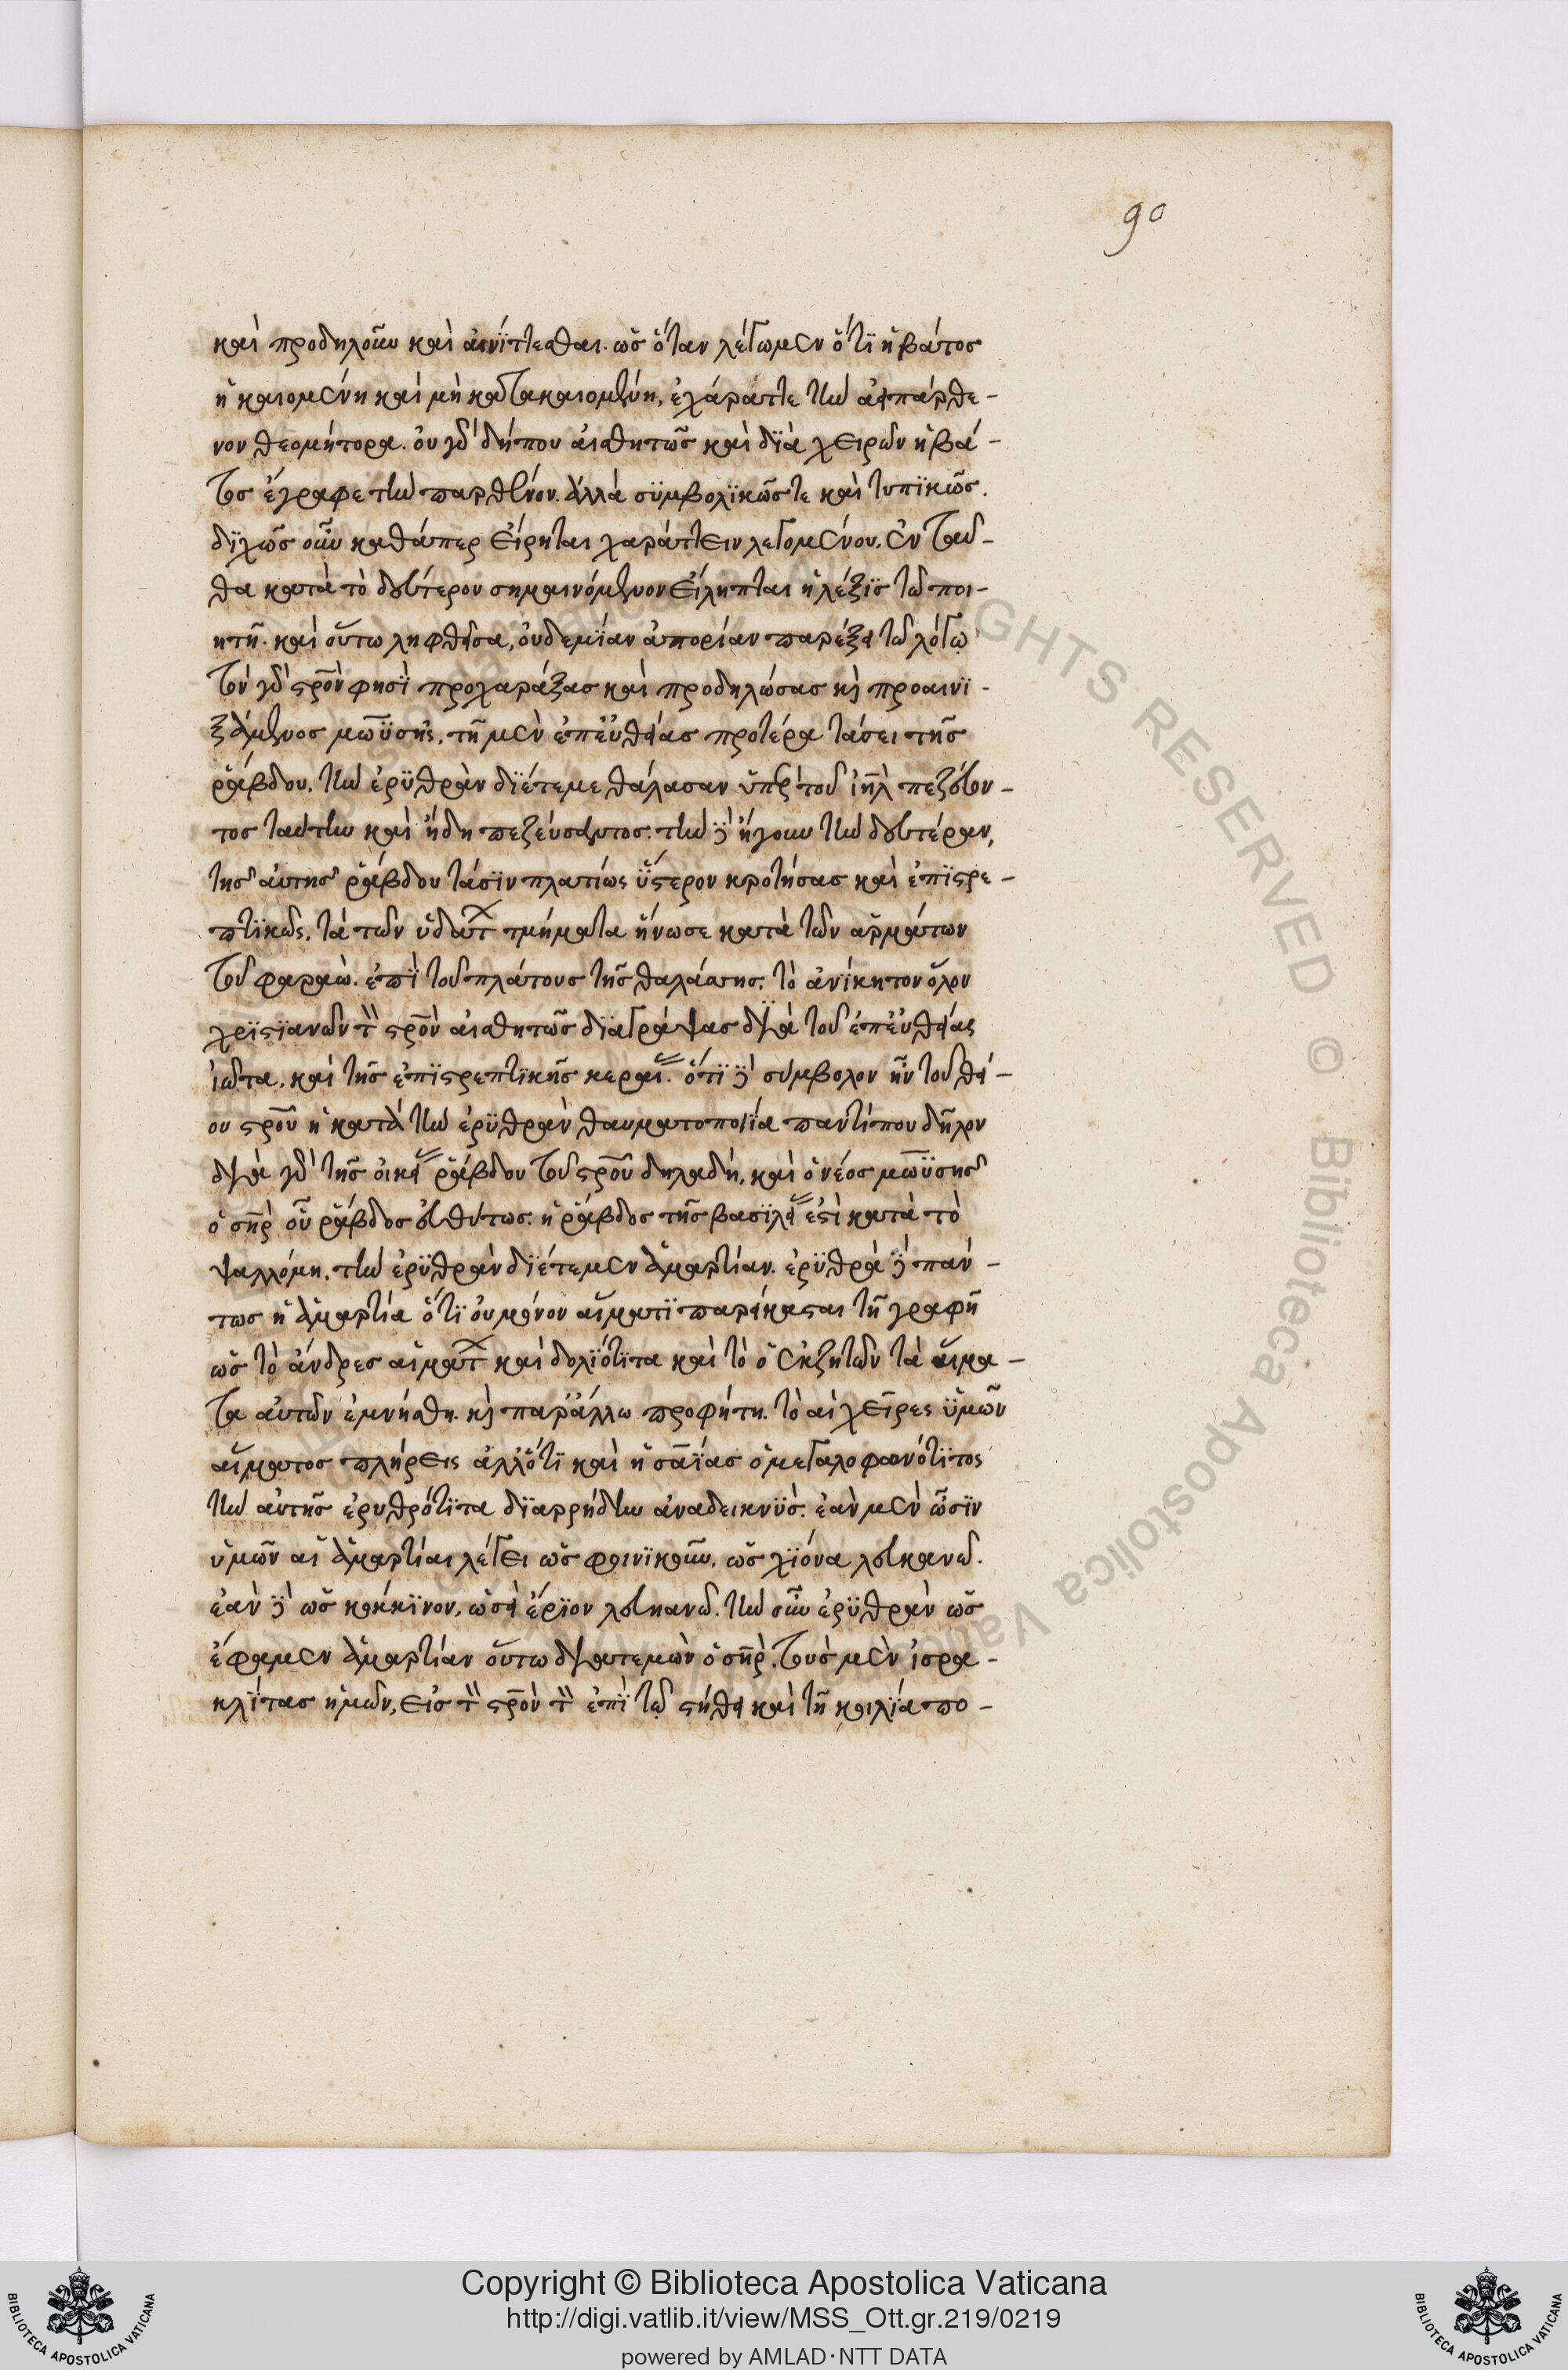 90
καὶ προδηλοῦν καὶ αἰνίττεσθαι. ὡς ὅταν λέγωμεν ὅτι ἡ βάτος
ἡ καιομένη καὶ μὴ κατακαιομένη, ἐχάραττε τὴν ἀειπάρθε-
νον θεομήτορα. οὐ γὰρ δήπου αἰσθητῶς καὶ διὰ χειρῶν ἡ βά-
τος ἔγραφε τὴν παρθένον. ἀλλὰ συμβολικῶς τε καὶ τυπικῶς.
διχῶς οὖν καθάπερ εἴρηται χαράττειν λεγομένου, ἐνταῦ-
θα κατὰ τὸ δεύτερον σημαινόμενον εἴληπται ἡ λέξις τῶ ποι-
ητῆ. καὶ οὕτω ληφθεῖσα, οὐδεμίαν ἀπορίαν παρέξει τῶ λόγω
τὸν γὰρ σρὸν φησὶ προχαράξας καὶ προδηλώσας καὶ προαινι-
ξάμενος μωϋσῆς, τῆ μὲν ἐπευθείας προτέρα τάσει τῆς
ῥάβδου, τὴν ἐρυθρὰν διέτεμε θάλασαν ὑπὲρ τοῦ ἰηλ πεζεύον-
τος ταύτην καὶ ἤδη πεζεύσαντος. τὴν δὲ ἤγουν τὴν δευτέραν,
τῆς αὐτῆς ῥάβδου τάσιν πλατίως ὕστερον κροτήσας καὶ ἐπιστρε-
πτικῶς, τὰ τῶν ὑδάτ τμήματα ἥνωσε κατὰ τῶν ἁρμάτων
τοῦ φαραώ. ἐπὶ τοῦ πλάτους τῆς θαλάσσης, τὸ ἀνίκητον ὅλον
χριστιανῶν τὸν σρὸν αἰσθητῶς διαγράψας διὰ τοῦ ἐπευθείας
ἰῶτα, καὶ τῆς ἐπιστρεπτικῆς κεραίας. ὅτι δὲ σύμβολον ἦν τοῦ θεί-
ου σροῦ ἡ κατὰ τὴν ἐρυθρὰν θαυματοποιία παντί που δῆλον
διὰ γὰρ τῆς οἰκείας ῥάβδου τοῦ σροῦ δηλαδή, καὶ ὁ νέος μωϋσῆς
ὁ σηρ οὗ ῥάβδος εὐθύτητος. ἡ ῥάβδος τῆς βασιλείας ἐστὶ κατὰ τὸ
ψαλλόμη, τὴν ἐρυθρὰν διέτεμεν ἁμαρτίαν. ἐρυθρὰ δὲ πάν-
τως ἡ ἁμαρτία ὅτι οὐ μόνον αἵματι παρείκασται τῆ γραφῆ
ὡς τὸ ἄνδρες αἱμάτ καὶ δολιότητα καὶ τὸ ὁ ἐκζητῶν τὰ αἵμα-
τα αὐτῶν ἐμνήσθη. καὶ παρ' ἄλλω προφήτη. τὸ αἱ χεῖρες ὑμῶν
αἵματος πλήρεις ἀλλ' ὅτι καὶ ἡσαΐας ὁ μεγαλοφωνότητος
τὴν αὐτῆς ἐρυθρότητα διαρρήδην ἀναδεικνὺς. ἐὰν μὲν ὦσιν
ὑμῶν αἱ ἁμαρτίαι λέγει ὡς φοινικοῦν, ὡς χιόνα λευκανῶ.
ἐὰν δὲ ὡς κόκκινον, ὡσεὶ ἔριον λευκανῶ. τὴν οὖν ἐρυθρὰν ὡς
ἔφαμεν ἁμαρτίαν οὕτω διατεμὼν ὁ σηρ, τοὺς μὲν ἰσρα-
ηλίτας ἡμῶν, εἰς τὸν σρὸν τὸν ἐπὶ τῶ στήθει καὶ τῆ κοιλία πο-
Copyright © Biblioteca Apostolica Vaticana
http://digi.vatlib.it/view/MSS_Ott.gr.219/0219
powered by AMLAD·NTT DATA